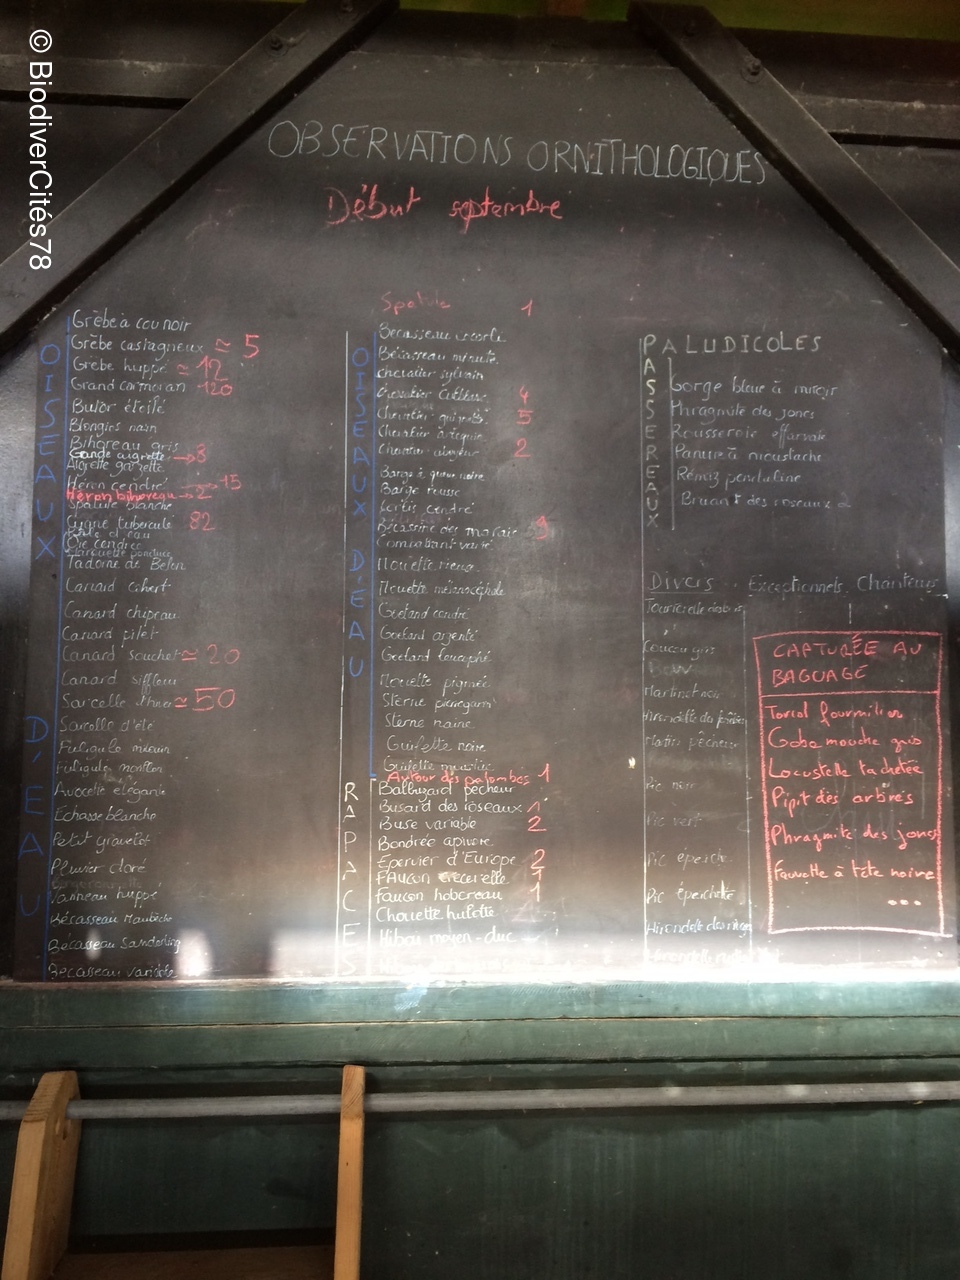 © BiodiverCités78
OBSERVATIONS ORNITHOLOGIQUES
Début septembre
OISEAUX D'EAU
Grèbe à cou noir
Grèbe castagneux ≃ 5
Grèbe huppé ≃ 12
Grand cormoran 120
Butor étoilé
Blongios nain
Bihoreau gris
Grande aigrette → 8
Aigrette garzette
Héron cendré → 15
Héron bihoreau → 2
Spatule blanche
Cygne tuberculé 82
Oie cendrée
Tadorne de Belon
Canard colvert
Canard chipeau
Canard pilet
Canard souchet ≃ 20
Canard siffleur
Sarcelle d'hiver ≃ 50
Sarcelle d'été
Fuligule milouin
Fuligule morillon
Avocette élégante
Echasse blanche
Petit gravelot
Pluvier doré
Vanneau huppé
Bécasseau Maubèche
Becasseau Sanderling
Becasseau variable
Spatule 1
OISEAUX D'ÉAU
Becasseau cocorli
Bécasseau minute
Chevalier sylvain
Chevalier 4
Chevalier 5
Chevalier
Chevalier aboyeur 2
Barge à queue noire
Barge rousse
Cortis cendré
Bécassine des marais 9
Combattant varié
Mouette rieuse
Mouette mélanocéphale
Goéland cendré
Goeland argenté
Goeland leucophé
Mouette pigmée
Sterne pierregarin
Sterne naine
Guifette noire
Guifette
Autour des palombes 1
RAPACES
Balbuzard pêcheur
Busard des roseaux 1
Buse variable 2
Bondrée apivore
Epervier d'Europe 2
FAucon crécerelle 1
Faucon hobereau 1
Chouette hulotte
Hibou moyen-duc
PALUDICOLES
PASSEREAUX
Gorge bleue à miroir
Phragmite des joncs
Rousserole effarvate
Panure à moustache
Rémiz penduline
Bruant des roseaux 2
Divers Exceptionnels Chanteurs
Tourterelle des bois
Coucou gris
Martinet noir
Hirondelle
Martin pêcheur
Pic noir
Pic vert
Pic épeiche
Pic épeichette
Hirondelle
CAPTURÉE AU
BAGUAGE
Torcol fourmilier
Gobe mouche gris
Locustelle tachetée
Pipit des arbres
Phragmite des joncs
Fauvette à tête noire
...